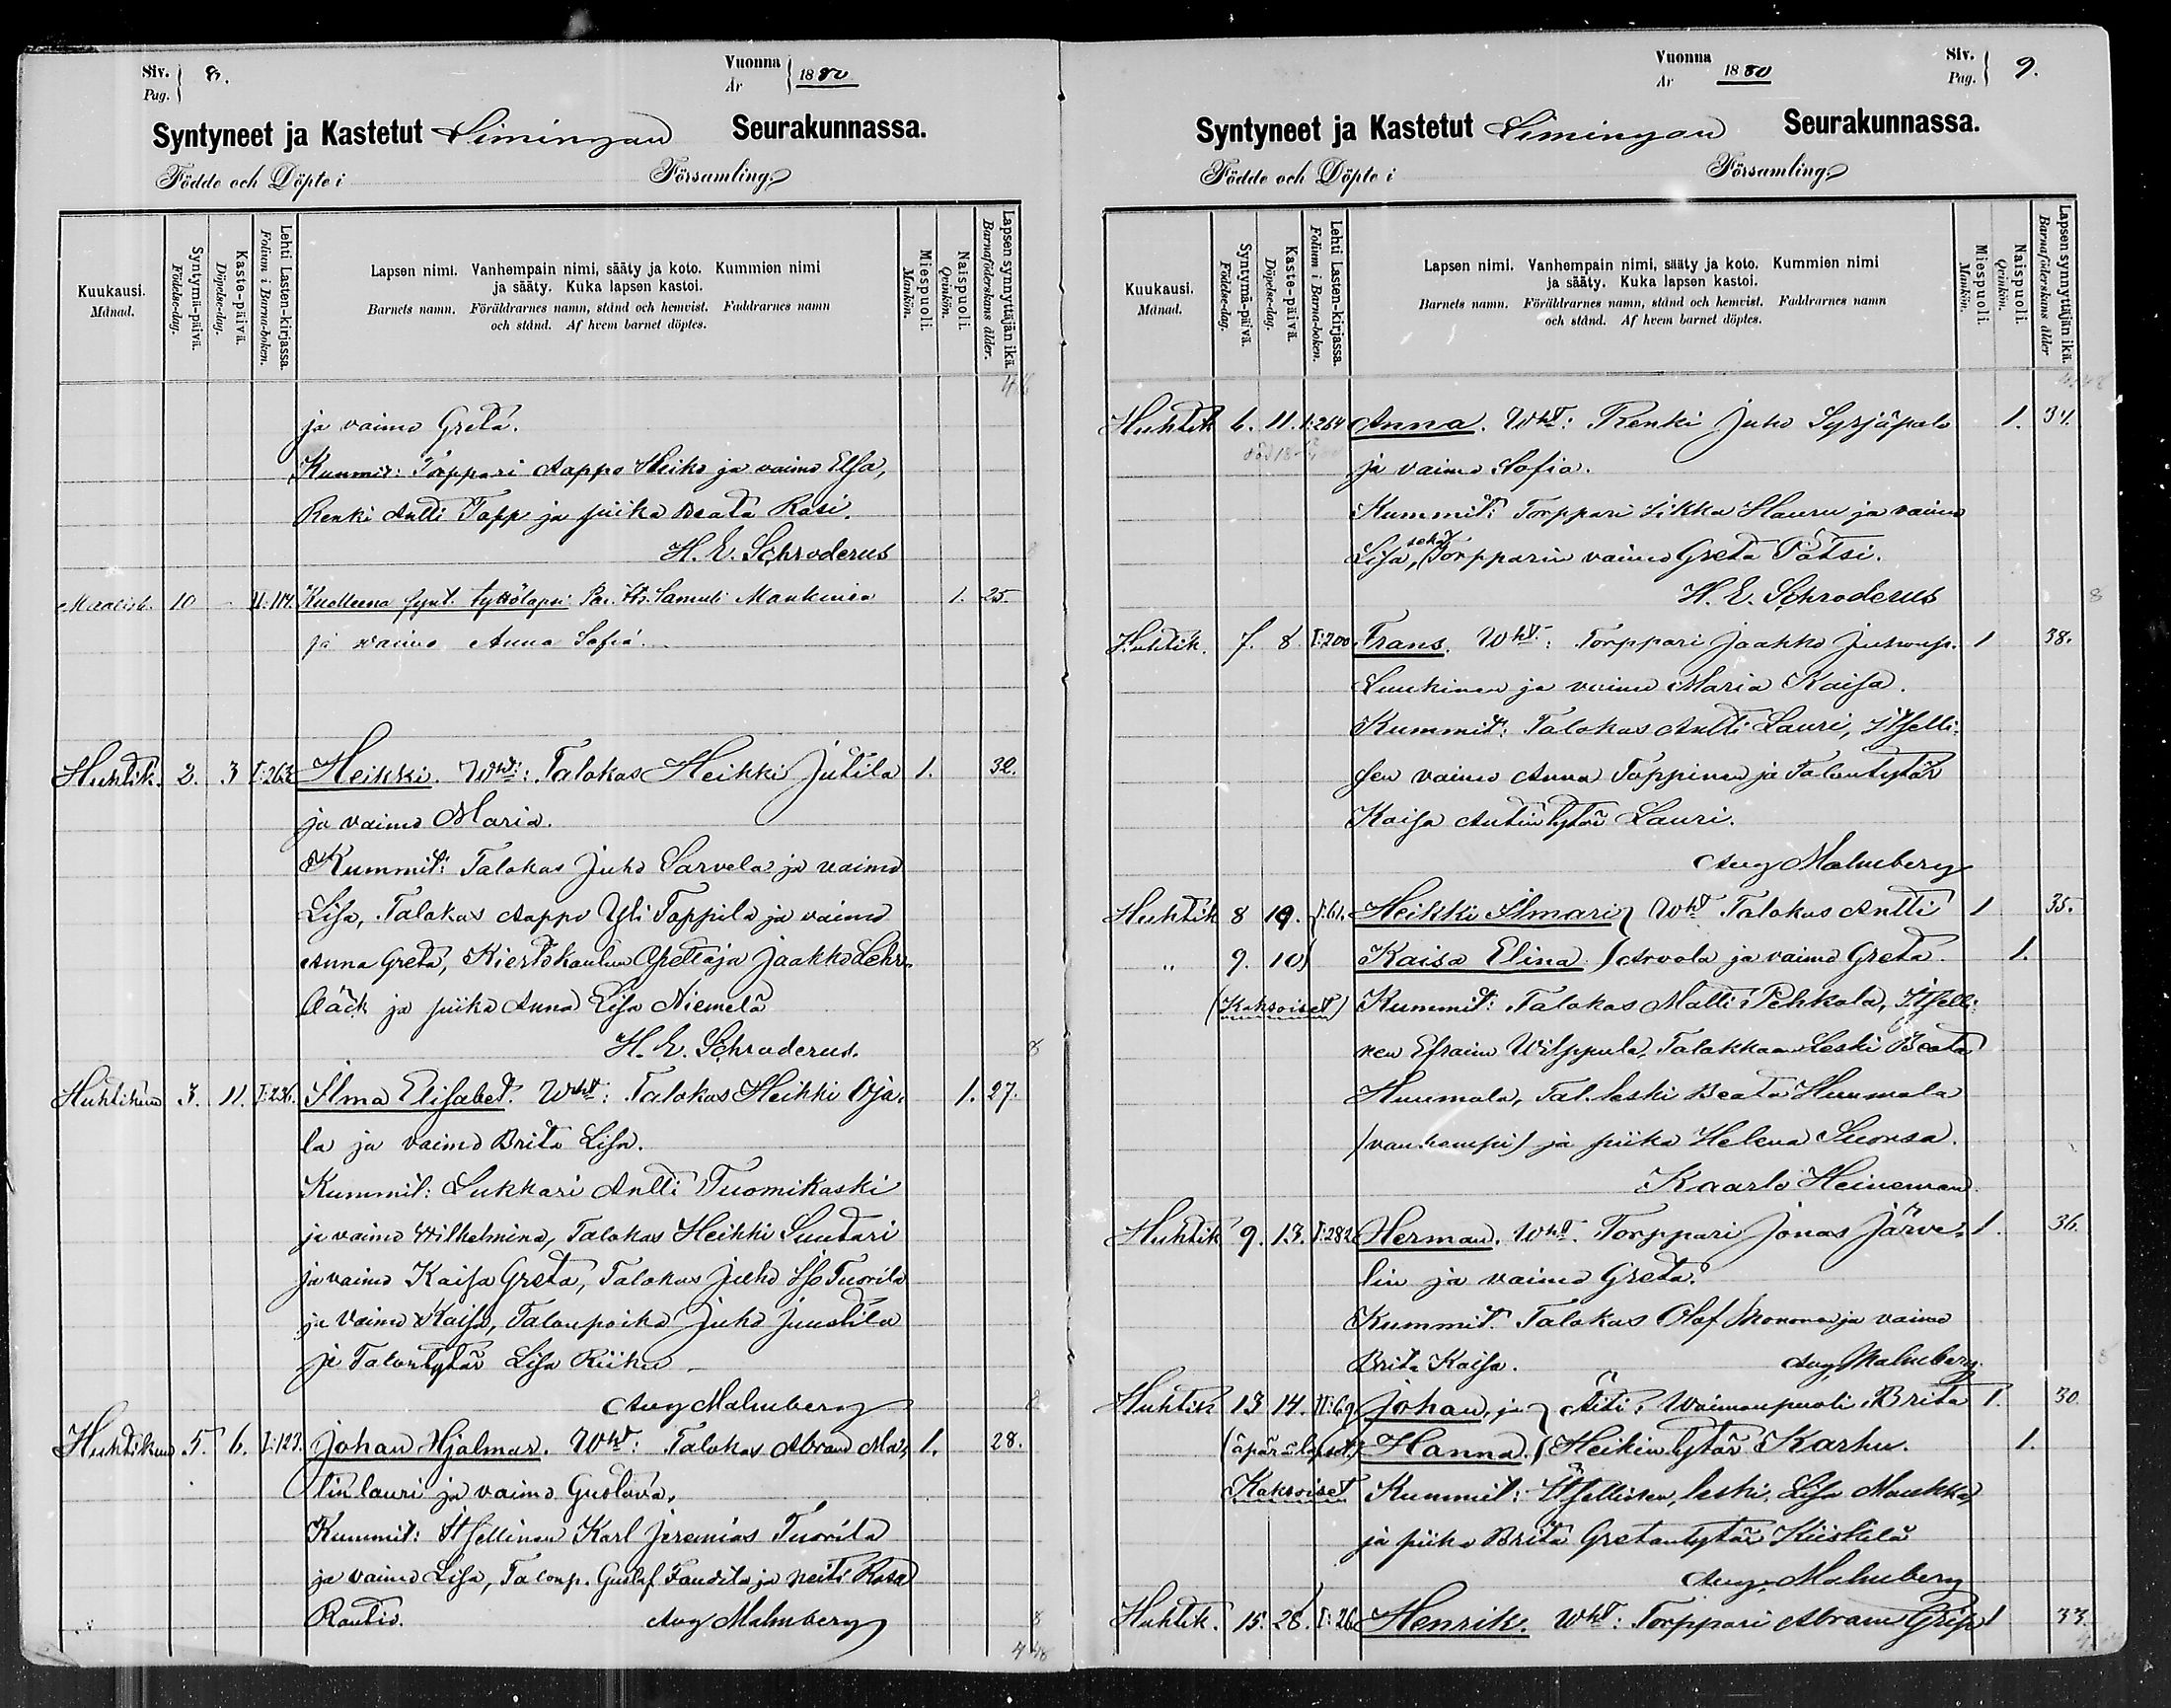 Siv. 8.
Pag.
Vuonna 1880
År
Syntyneet ja Kastetut Limingan Seurakunnassa.
Födde och Döpte i Församling
Kuukausi. Månad.
Syntymä-päivä. Födelse-dag.
Kaste-päivä. Döpelse-dag.
Lehti Lasten-kirjassa. Folium i Barna-boken.
Lapsen nimi. Vanhempain nimi, sääty ja koto. Kummien nimi
ja sääty. Kuka lapsen kastoi.
Barnets namn. Föräldrarnes namn, stånd och hemvist. Faddrarnes namn
och stånd. Af hvem barnet döptes.
Miespuoli. Mankön.
Naispuoli. Qvinkön.
Lapsen synnyttäjän ikä. Barnaföderskans ålder.
ja vaimo Greta.
Kummit: Torppari Aappo Heiko ja vaimo Elsa,
Renki Antti Tapp ja piika Beata Rasi.
H. E. Schroderus
Maalisk. 10 - II:114. Kuolleena synt. tyttölapsi Samuli Mankinen 1. 25.
ja waimo Anna Sofia.
Huhtik. 2. 3 I:263 Heikki. Wht: Talokas Heikki Jutila 1. 32.
ja vaimo Maria.
Kummit: Talokas Juho Sarvela ja vaimo
Lisa, Talokas Aappo Yli Toppila ja vaimo
Anna Greta, Kiertokoulun Opettaja Jaakko Lehr-
bäck ja piika Anna Lisa Niemelä
H. E. Schroderus.
Huhtikuu 3. 11. I:236. Ilma Elisabet. Wht: Talokas Heikki Oja- 1. 27.
la ja vaimo Brita Lisa.
Kummit: Lukkari Antti Tuomikoski
ja vaimo Wilhelmina, Talokas Heikki Suutari
ja vaimo Kaisa Greta, Talokas Juho Iso Tuorila
ja vaimo Kaisa, Talonpoika Juho Juustila
ja Talontytär Lisa Riiku
Aug Malmberg
Huhtikuu 5. 6. I:123. Johan Hjalmar. Wht: Talokas Abram Ma- 1. 28.
tinlauri ja vaimo Gustava,
Kummit: Itsellinen Karl Jeremias Tuorila
ja vaimo Lisa, Talonp. Gustaf ja neiti Rosa
Rautio. Aug Malmberg
Vuonna 1880
År
Siv. 9.
Pag.
Syntyneet ja Kastetut Limingan Seurakunnassa.
Födde och Döpte i Församling
Kuukausi. Månad.
Syntymä-päivä. Födelse-dag.
Kaste-päivä. Döpelse-dag.
Lehti Lasten-kirjassa. Folium i Barna-boken.
Lapsen nimi. Vanhempain nimi, sääty ja koto. Kummien nimi
ja sääty. Kuka lapsen kastoi.
Barnets namn. Föräldrarnes namn, stånd och hemvist. Faddrarnes namn
och stånd. Af hvem barnet döptes.
Miespuoli. Mankön.
Naispuoli. Qvinkön.
Lapsen synnyttäjän ikä. Barnaföderskans ålder
Huhtik 6. 11. I:264 Anna. Wht: Renki Juho Syrjäpalo 1. 34.
ja vaimo Sofia.
Kummit: Torppari Iikka Hauru ja vaimo
Lisa, sekä Torpparin vaimo Greta Pätsi.
H. E. Schroderus
Huhtik. 7. 8. I:200. Frans. Wht: Torppari Jaakko Juhonp. 1 38.
Luukinen ja vaimo Maria Kaisa.
Kummit: Talokas Antti Lauri, Itselli-
sen vaimo Anna Toppinen ja Talontytär
Kaisa Antintytär Lauri.
Aug Malmberg
Huhtik 8 10. I:61. Heikki Ilmari Wht Talokas Antti 1 35.
" 9. 10 Kaisa Elina Arvola ja vaimo Greta. 1.
(Kaksoiset) Kummit: Talokas Matti Pehkola, Itselli-
nen Efraim Wilppula, Talokkaan Leski Beata
Huumala, Tal. leski Beata Huumala
(vanhempi) ja piika Helena Suorsa.
Kaarlo Heineman.
Huhtik 9. 13. I:282 Herman. Wht. Torppari Jonas Järve- 1. 36.
lin ja vaimo Greta.
Kummit. Talokas Olof Mononen ja vaimo
Brita Kaisa. Aug Malmberg.
Huhtik 13 14. II:69 Johan, ja Äiti: Waimonpuoli Brita 1. 30.
(äpärälapset) Hanna. Heikintytär Karhu. 1.
Kaksoiset Kummit: Itsellisen leski Lisa Maukka,
ja piika Brita Gretantytär Kiistilä
Aug. Malmberg
Huhtik. 15. 28. I:26 Henrik. Wht: Torppari Abram Grip 1 33.